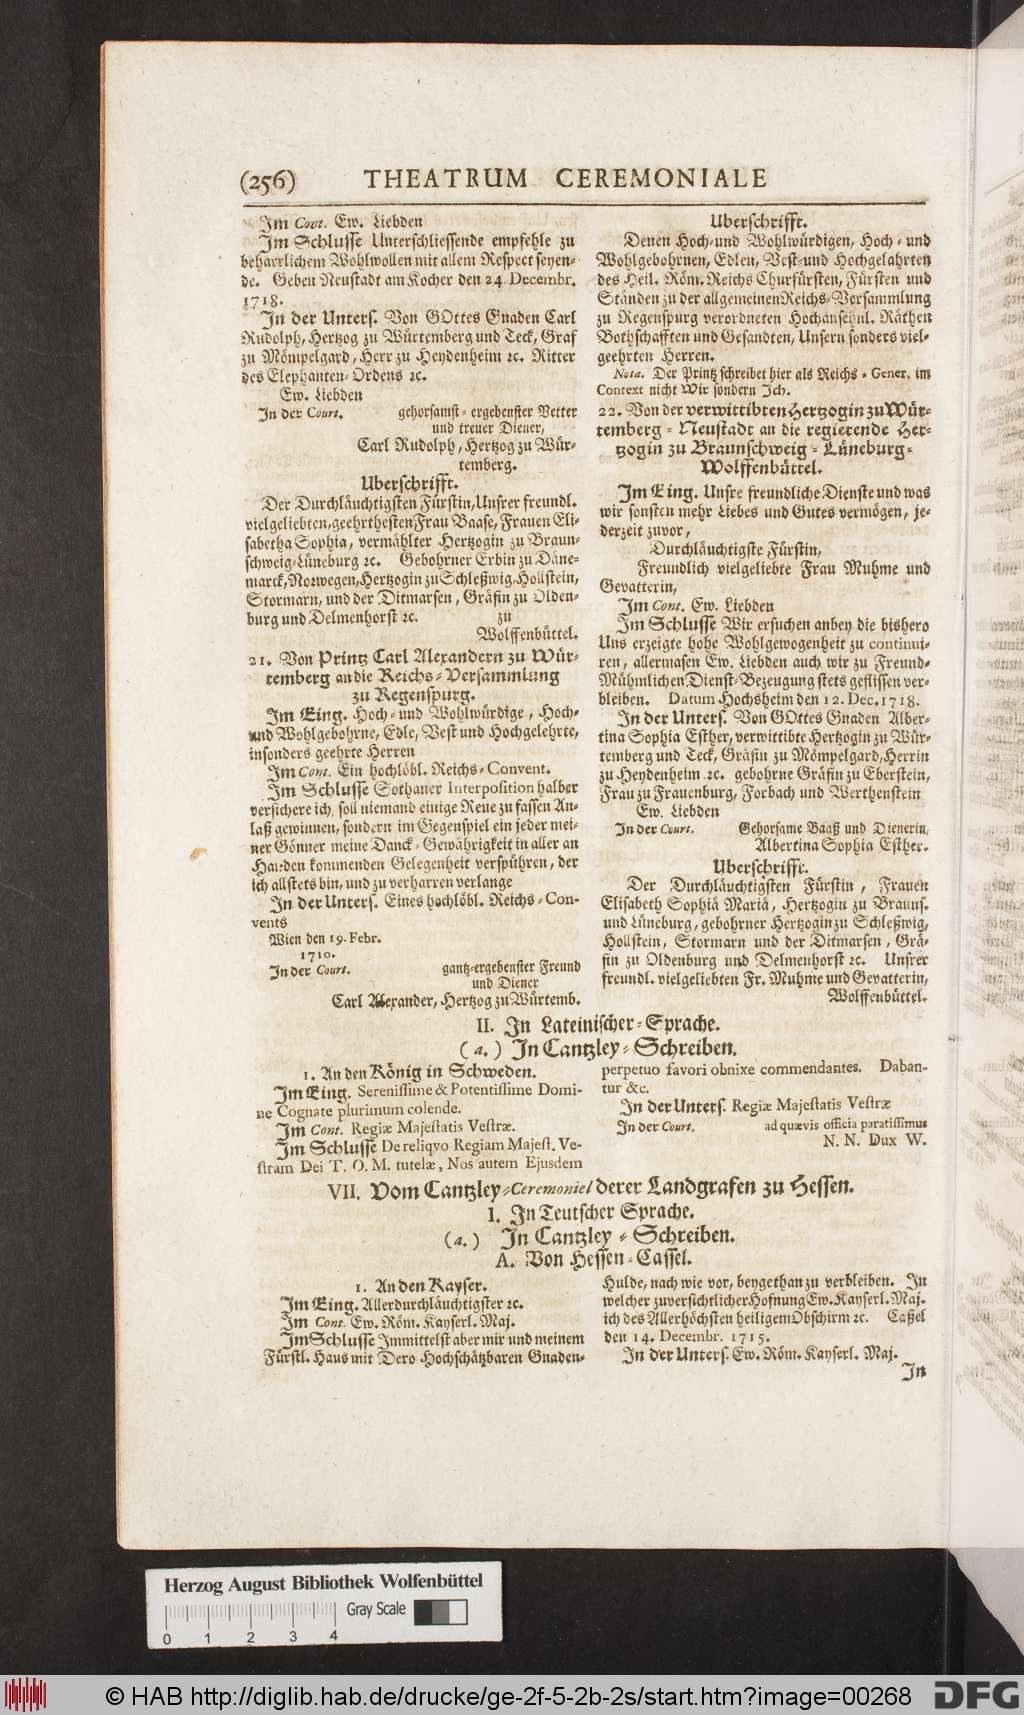 (256) THEATRUM CEREMONIALE
Im Cont. Ew. Liebden
Im Schlusse Unterschliessende empfehle zu
beharrlichem Wohlwollen mit allem Respect seyen-
de. Geben Neustadt am Kocher den 24. Decembr.
1718.
In der Unters. Von GOttes Gnaden Carl
Rudolph, Hertzog zu Würtemberg und Teck, Graf
zu Mömpelgard, Herr zu Heydenheim ꝛc. Ritter
des Elephanten-Ordens ꝛc.
Ew. Liebden
In der Court. gehorsamst-ergebenster Vetter
und treuer Diener,
Carl Rudolph, Hertzog zu Wür-
temberg.
Uberschrifft.
Der Durchläuchtigsten Fürstin, Unsrer freundl.
vielgeliebten, geehrthesten Frau Baase, Frauen Eli-
sabetha Sophia, vermählter Hertzogin zu Braun-
schweig-Lüneburg ꝛc. Gebohrner Erbin zu Däne-
marck, Norwegen, Hertzogin zu Schleßwig, Hollstein,
Stormarn, und der Ditmarsen, Gräfin zu Olden-
burg und Delmenhorst ꝛc. zu
Wolffenbüttel.
21. Von Printz Carl Alexandern zu Wür-
temberg an die Reichs-Versammlung
zu Regenspurg.
Im Eing. Hoch- und Wohlwürdige, Hoch-
und Wohlgebohrne, Edle, Vest und Hochgelehrte,
insonders geehrte Herren
Im Cont. Ein hochlöbl. Reichs-Convent.
Im Schlusse Sothaner Interposition halber
versichere ich, soll niemand einige Reue zu fassen An-
laß gewinnen, sondern im Gegenspiel ein jeder mei-
ner Gönner meine Danck-Gewährigkeit in aller an
Handen kommenden Gelegenheit verspühren, der
ich allstets bin, und zu verharren verlange
In der Unters. Eines hochlöbl. Reichs-Con-
vents
Wien den 19. Febr.
1710.
In der Court. gantz-ergebenster Freund
und Diener
Carl Alexander, Hertzog zu Würtemb.
Uberschrifft.
Denen Hoch- und Wohlwürdigen, Hoch- und
Wohlgebohrnen, Edlen, Vest- und Hochgelahrten
des Heil. Röm. Reichs Churfürsten, Fürsten und
Ständen zu der allgemeinen Reichs-Versammlung
zu Regenspurg verordneten Hochansehnl. Räthen
Bothschafften und Gesandten, Unsern sonders viel-
geehrten Herren.
Nota. Der Printz schreibet hier als Reichs-Gener. im
Context nicht Wir sondern Ich.
22. Von der verwittibten Hertzogin zu Wür-
temberg-Neustadt an die regierende Her-
tzogin zu Braunschweig-Lüneburg-
Wolffenbüttel.
Im Eing. Unsre freundliche Dienste und was
wir sonsten mehr Liebes und Gutes vermögen, je-
derzeit zuvor,
Durchläuchtigste Fürstin,
Freundlich vielgeliebte Frau Muhme und
Gevatterin,
Im Cont. Ew. Liebden
Im Schlusse Wir ersuchen anbey die bishero
Uns erzeigte hohe Wohlgewogenheit zu continui-
ren, allermasen Ew. Liebden auch wir zu Freund-
Mühmlichen Dienst-Bezeugung stets geflissen ver-
bleiben. Datum Hochsheim den 12. Dec. 1718.
In der Unters. Von GOttes Gnaden Alber-
tina Sophia Esther, verwittibte Hertzogin zu Wür-
temberg und Teck, Gräfin zu Mömpelgard, Herrin
zu Heydenheim ꝛc. gebohrne Gräfin zu Eberstein,
Frau zu Frauenburg, Forbach und Werthenstein
Ew. Liebden
In der Court. Gehorsame Baaß und Dienerin,
Albertina Sophia Esther.
Uberschrifft.
Der Durchläuchtigsten Fürstin, Frauen
Elisabeth Sophiä Mariä, Hertzogin zu Brauns.
und Lüneburg, gebohrner Hertzogin zu Schleßwig,
Hollstein, Stormarn und der Ditmarsen, Grä-
fin zu Oldenburg und Delmenhorst ꝛc. Unsrer
freundl. vielgeliebten Fr. Muhme und Gevatterin,
Wolffenbüttel.
II. In Lateinischer-Sprache.
(a.) In Cantzley-Schreiben.
1. An den König in Schweden.
Im Eing. Serenissime & Potentissime Domi-
ne Cognate plurimum colende.
Im Cont. Regiæ Majestatis Vestræ.
Im Schlusse De reliqvo Regiam Majest. Ve-
stram Dei T. O. M. tutelæ, Nos autem Ejusdem
perpetuo favori obnixe commendantes. Daban-
tur &c.
In der Unters. Regiæ Majestatis Vestræ
In der Court. ad quævis officia paratissimus
N. N. Dux W.
VII. Vom Cantzley-Ceremoniel derer Landgrafen zu Hessen.
I. In Teutscher Sprache.
(a.) In Cantzley-Schreiben.
A. Von Hessen-Cassel.
1. An den Kayser.
Im Eing. Allerdurchläuchtigster ꝛc.
Im Cont. Ew. Röm. Kayserl. Maj.
Im Schlusse Immittelst aber mir und meinem
Fürstl. Haus mit Dero Hochschätzbaren Gnaden-
Hulde, nach wie vor, beygethan zu verbleiben. In
welcher zuversichtlicher Hofnung Ew. Kayserl. Maj.
ich des Allerhöchsten heiligem Obschirm ꝛc. Caßel
den 14. Decembr. 1715.
In der Unters. Ew. Röm. Kayserl. Maj.
In
Herzog August Bibliothek Wolfenbüttel
Gray Scale
0 1 2 3 4
© HAB http://diglib.hab.de/drucke/ge-2f-5-2b-2s/start.htm?image=00268
DFG